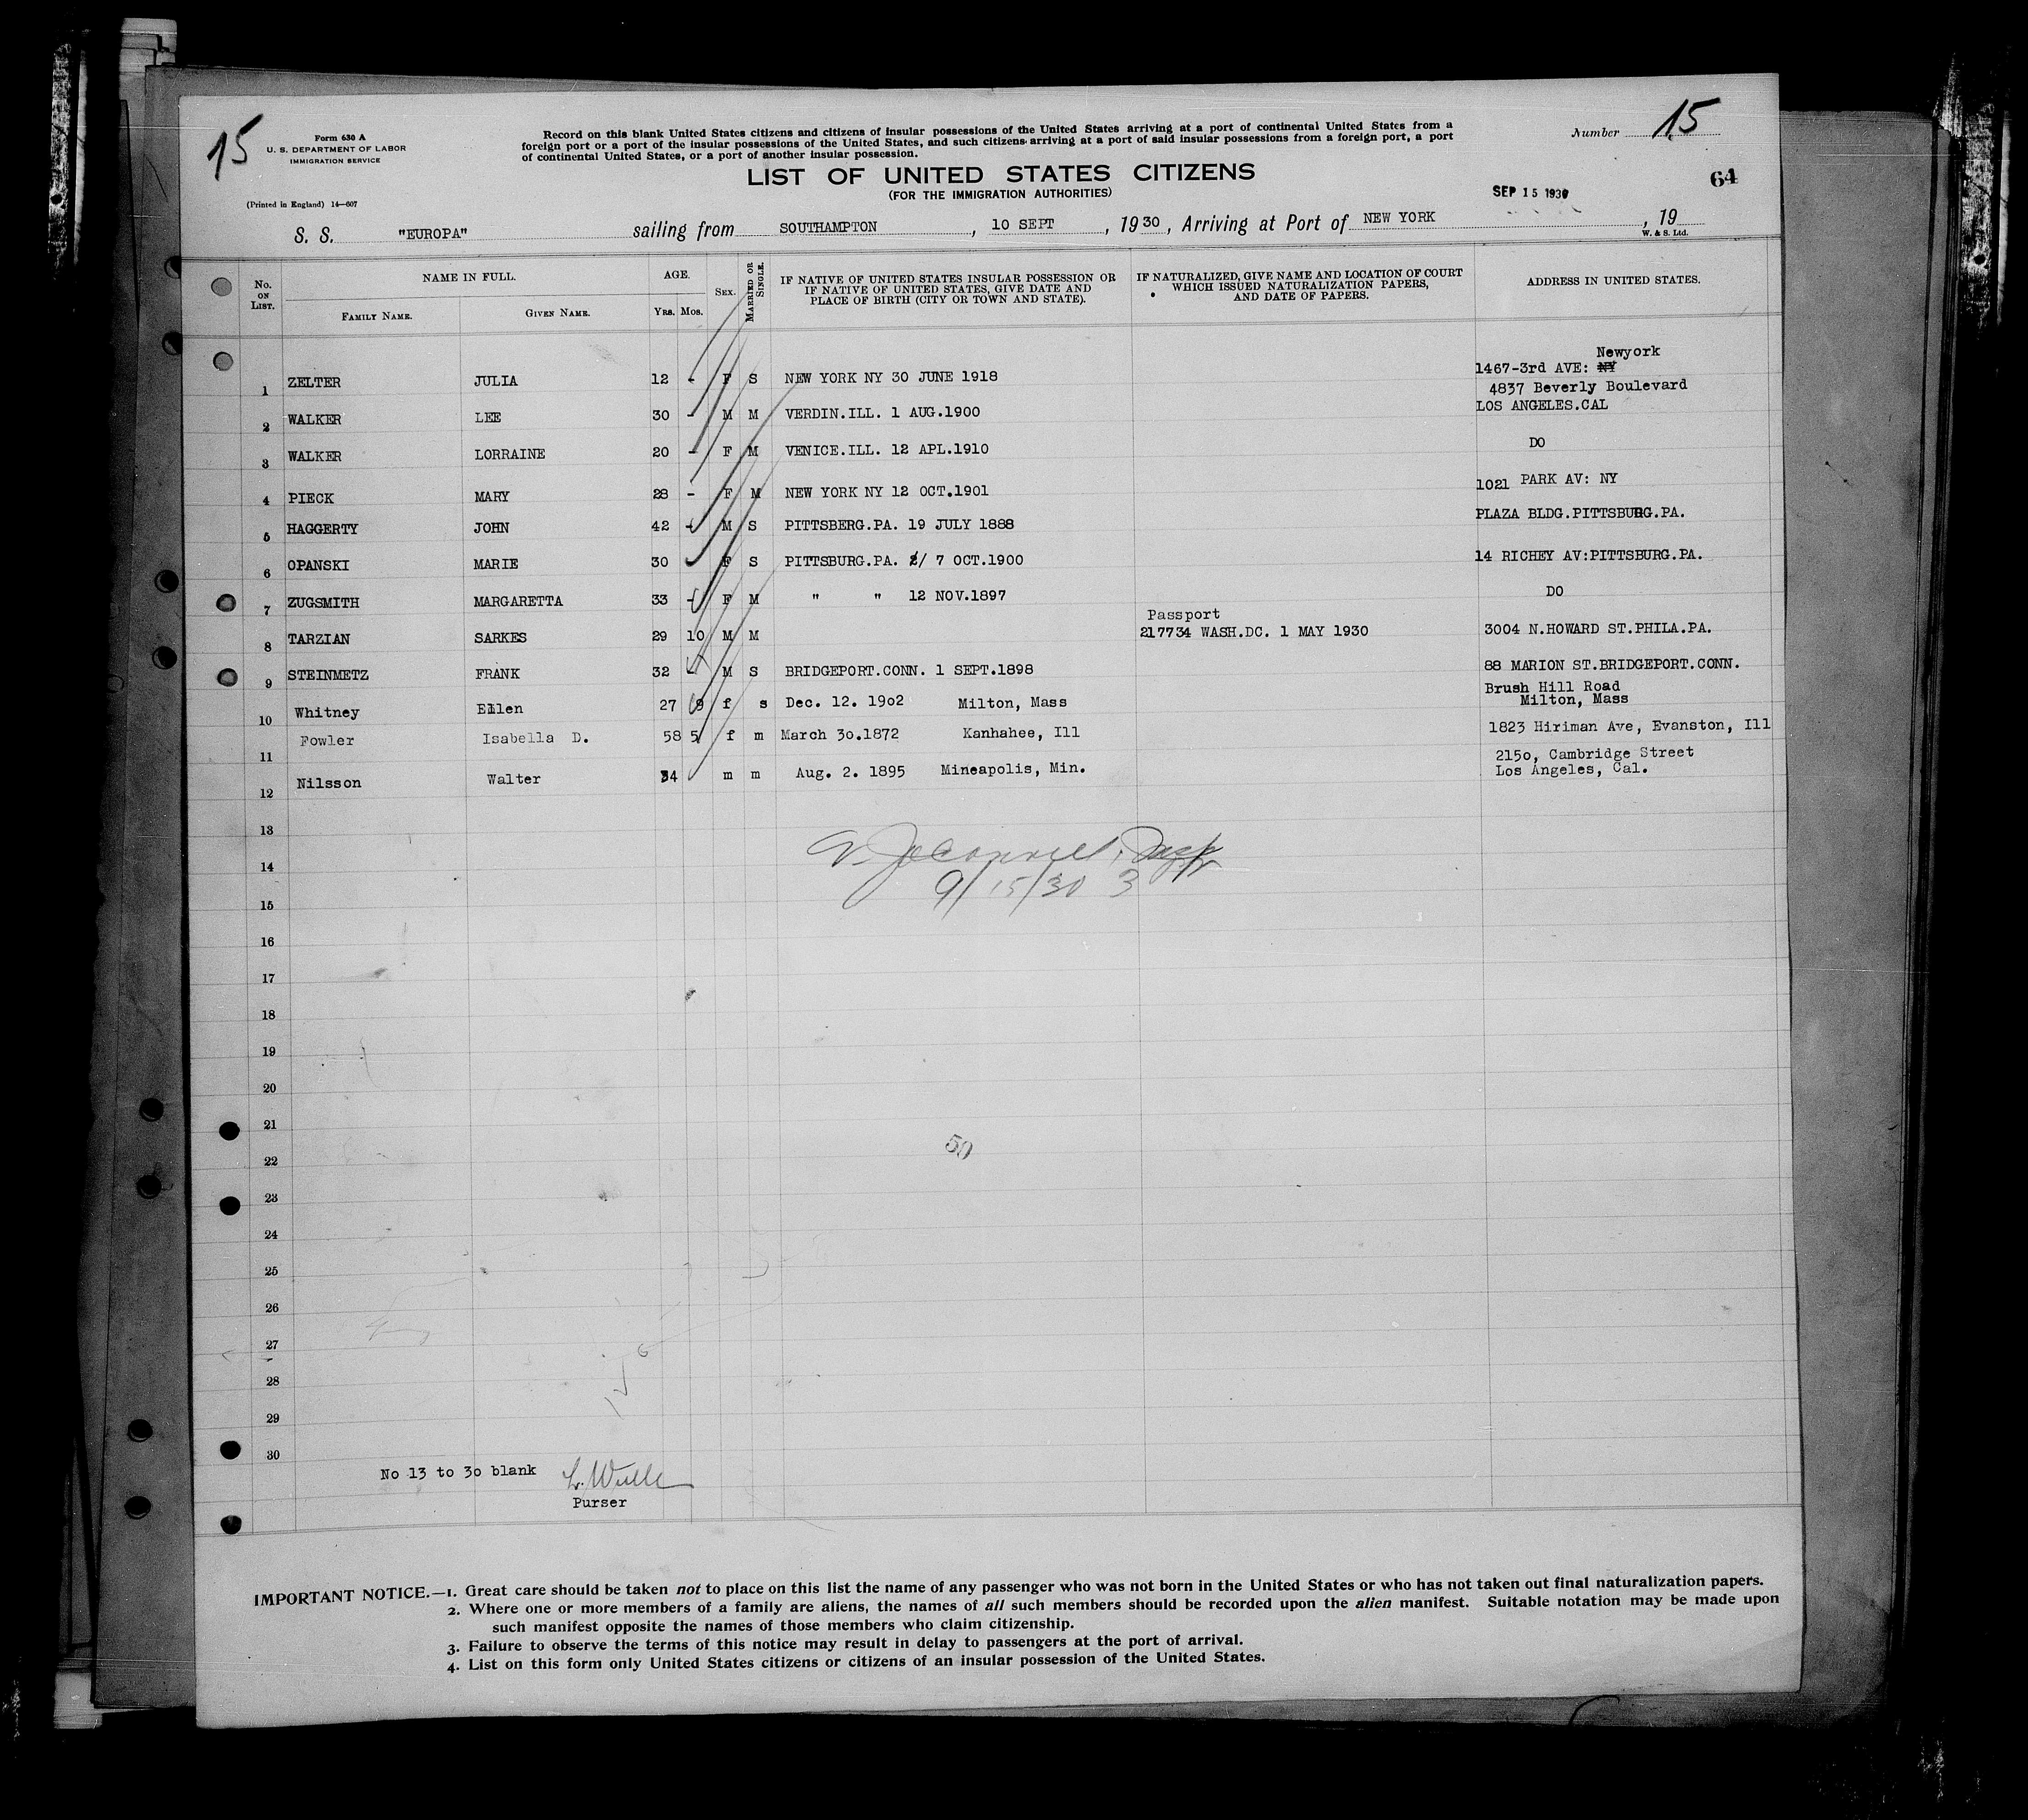 15
Form 630 A
U. S. DEPARTMENT OF LABOR
IMMIGRATION SERVICE
(Printed in England) 14—607
Record on this blank United States citizens and citizens of insular possessions of the United States arriving at a port of continental United States from a
foreign port or a port of the insular possessions of the United States, and such citizens arriving at a port of said insular possessions from a foreign port, a port
of continental United States, or a port of another insular possession.
Number 15
LIST OF UNITED STATES CITIZENS
(FOR THE IMMIGRATION AUTHORITIES)
SEP 15 1930
64
S. S. "EUROPA" sailing from SOUTHAMPTON, 10 SEPT, 1930, Arriving at Port of NEW YORK, 19
W. & S. Ltd.
No. ON LIST. NAME IN FULL. FAMILY NAME. GIVEN NAME. AGE. YRS. MOS. SEX. MARRIED OR SINGLE. IF NATIVE OF UNITED STATES INSULAR POSSESSION OR IF NATIVE OF UNITED STATES, GIVE DATE AND PLACE OF BIRTH (CITY OR TOWN AND STATE). IF NATURALIZED, GIVE NAME AND LOCATION OF COURT WHICH ISSUED NATURALIZATION PAPERS, AND DATE OF PAPERS. ADDRESS IN UNITED STATES.
Newyork
1 ZELTER JULIA 12 - F S NEW YORK NY 30 JUNE 1918 1467-3rd AVE: NY
4837 Beverly Boulevard
2 WALKER LEE 30 - M M VERDIN.ILL. 1 AUG.1900 LOS ANGELES.CAL
3 WALKER LORRAINE 20 - F M VENICE.ILL. 12 APL.1910 DO
4 PIECK MARY 28 - F M NEW YORK NY 12 OCT.1901 1021 PARK AV: NY
5 HAGGERTY JOHN 42 - M S PITTSBERG.PA. 19 JULY 1888 PLAZA BLDG.PITTSBURG.PA.
6 OPANSKI MARIE 30 F S PITTSBURG.PA. 2/ 7 OCT.1900 14 RICHEY AV:PITTSBURG.PA.
7 ZUGSMITH MARGARETTA 33 - F M " " 12 NOV.1897 DO
Passport
8 TARZIAN SARKES 29 10 M M 217734 WASH.DC. 1 MAY 1930 3004 N.HOWARD ST.PHILA.PA.
9 STEINMETZ FRANK 32 - M S BRIDGEPORT.CONN. 1 SEPT.1898 88 MARION ST.BRIDGEPORT.CONN.
10 Whitney Ellen 27 9 f s Dec. 12. 19o2 Milton, Mass Brush Hill Road
Milton, Mass
11 Fowler Isabella D. 58 5 f m March 3o.1872 Kanhahee, Ill 1823 Hiriman Ave, Evanston, Ill
12 Nilsson Walter 34 m m Aug. 2. 1895 Mineapolis, Min. 215o, Cambridge Street
Los Angeles, Cal.
13
14
9/15/30 3
15
16
17
18
19
20
21
50
22
23
24
25
26
27
28
29
30
No 13 to 3o blank
Purser
IMPORTANT NOTICE.—1. Great care should be taken not to place on this list the name of any passenger who was not born in the United States or who has not taken out final naturalization papers.
2. Where one or more members of a family are aliens, the names of all such members should be recorded upon the alien manifest. Suitable notation may be made upon
such manifest opposite the names of those members who claim citizenship.
3. Failure to observe the terms of this notice may result in delay to passengers at the port of arrival.
4. List on this form only United States citizens or citizens of an insular possession of the United States.